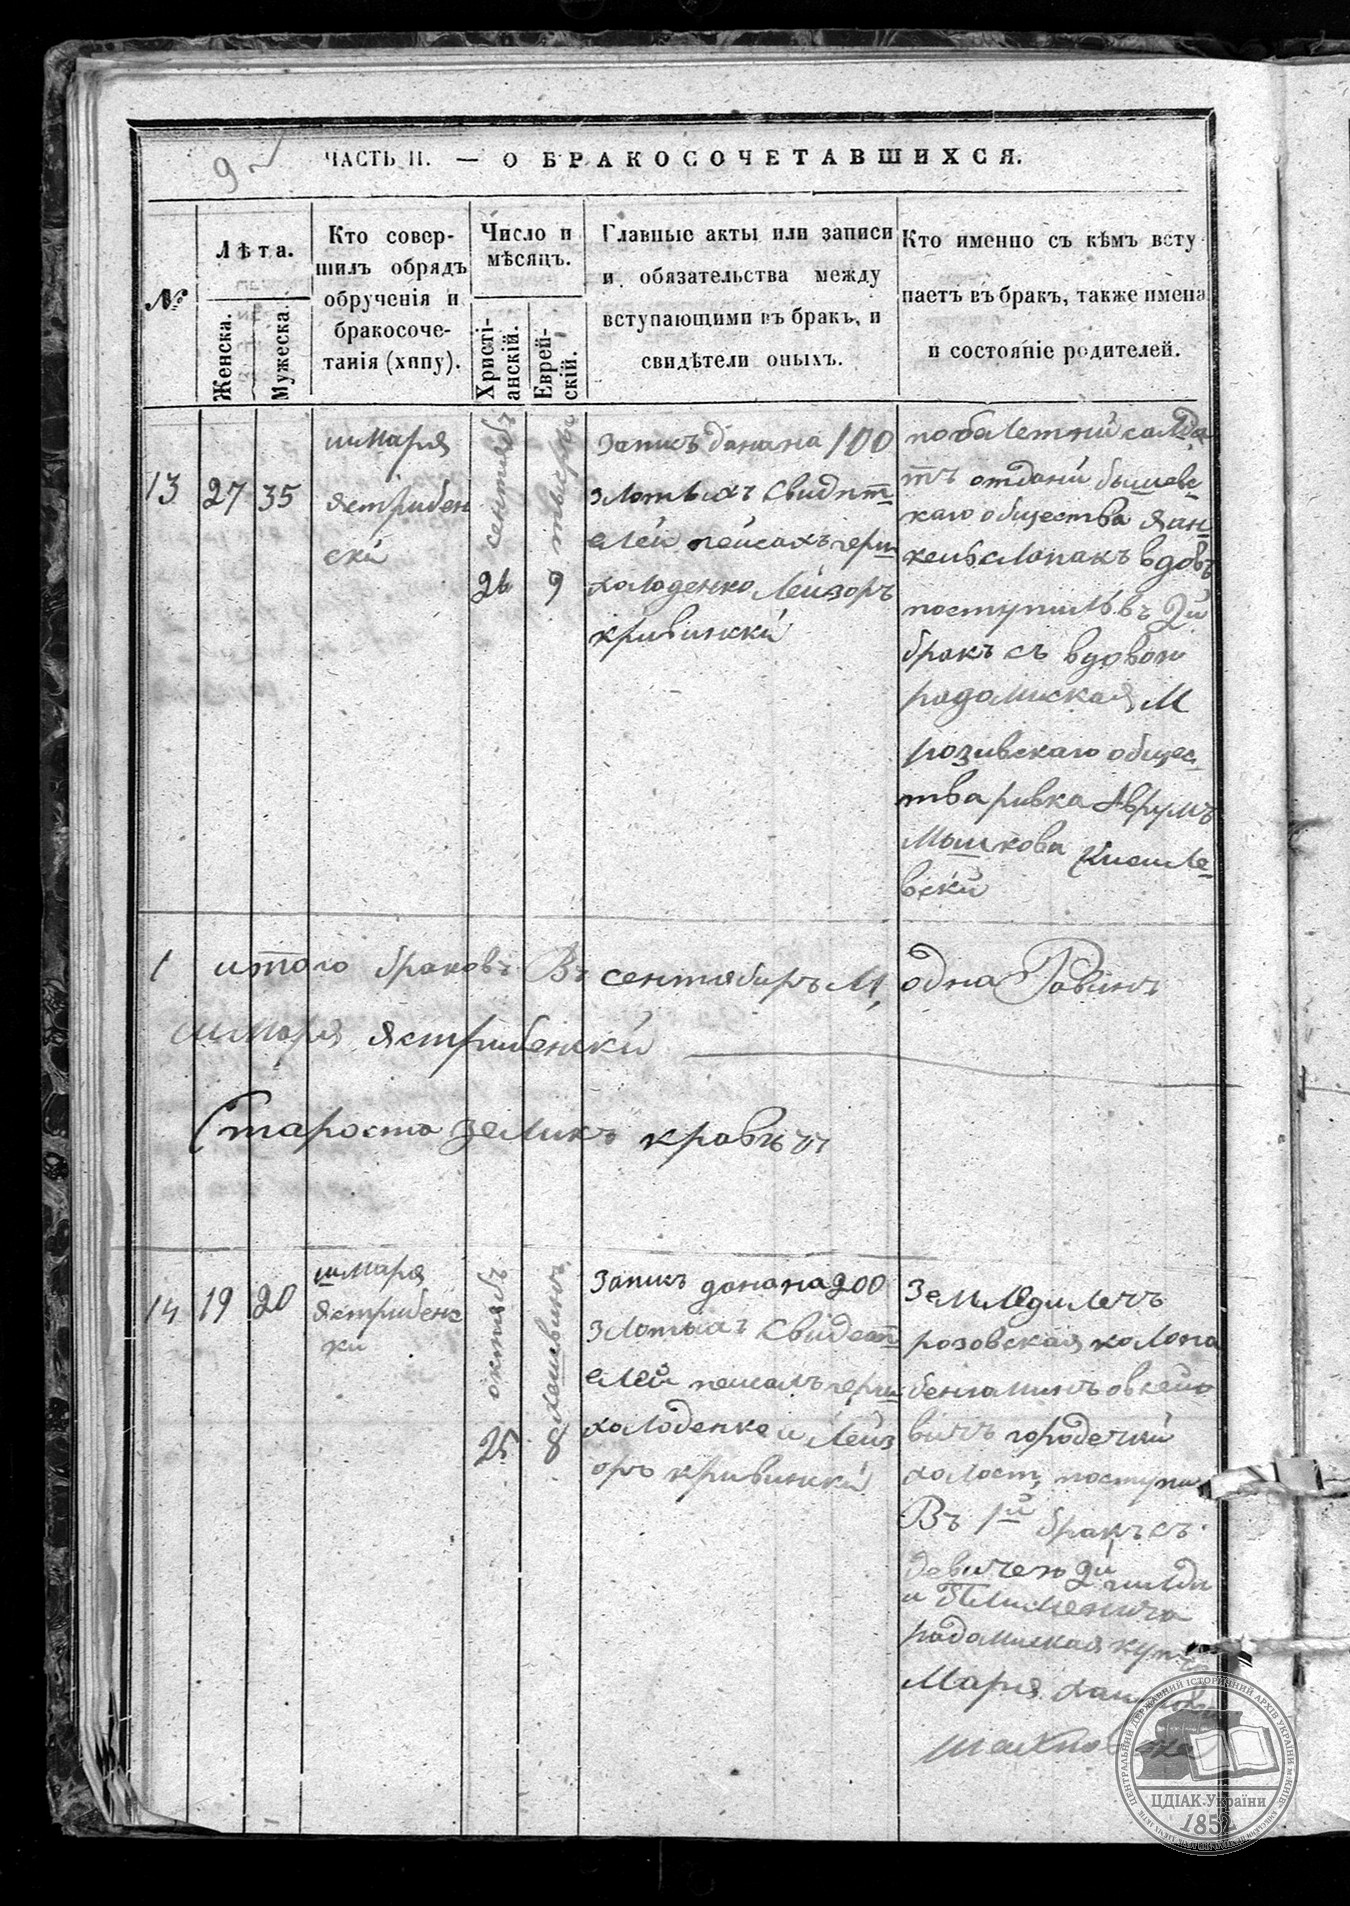 ЧАСТЬ II. — О БРАКОСОЧЕТАВШИХСЯ.
№
Лѣта.
Женска.
Мужеска.
Кто совер-
шилъ обрядъ
обрученія и
бракосоче-
танія (хипу).
Число и
мѣсяцъ.
Христі-
анскій.
Еврей-
скій.
Главные акты или записи
и обязательства между
вступающими въ бракъ, и
свидѣтели оныхъ.
Кто именно съ кѣмъ всту
паетъ въ бракъ, также имена
и состояніе родителей.
13
27
35
шмаря
ястрибен
ски
сентябъ
26
9
запись дана на 100
злотыхъ свидит
елей пейсахъ герш
холоденко лейзоръ
кривински
отдани бышевс
каго общества ян
кель слопакъ вдовъ
поступилъ въ 2й
бракъ съ вдовою
радомиская М
розивскаго общес
тва ривка Аврумъ
мошкова Кисиле
вски
1 итого браковъ Въ сентябиръ М, одна Равинъ
шмаря ястрибенски
Староста зеликъ кравецъ
14
19
20
шмаря
ястрибенс
ки
октябъ
25
8 хешвинъ
запись дана на 200
злотыхъ свидет
елей пейсахъ герш
холоденко и лейз
оръ кривински
земледилецъ
розовская колона
бениаминъ овсейо
вичъ городецкий
холост, поступил
Въ 1й бракъ съ
девицею 2й гилди
радомиская купца
Маря
ЦЕНТРАЛЬНИЙ ДЕРЖАВНИЙ ІСТОРИЧНИЙ АРХІВ УКРАЇНИ м.КИЇВ
ЦДІАК України
1852